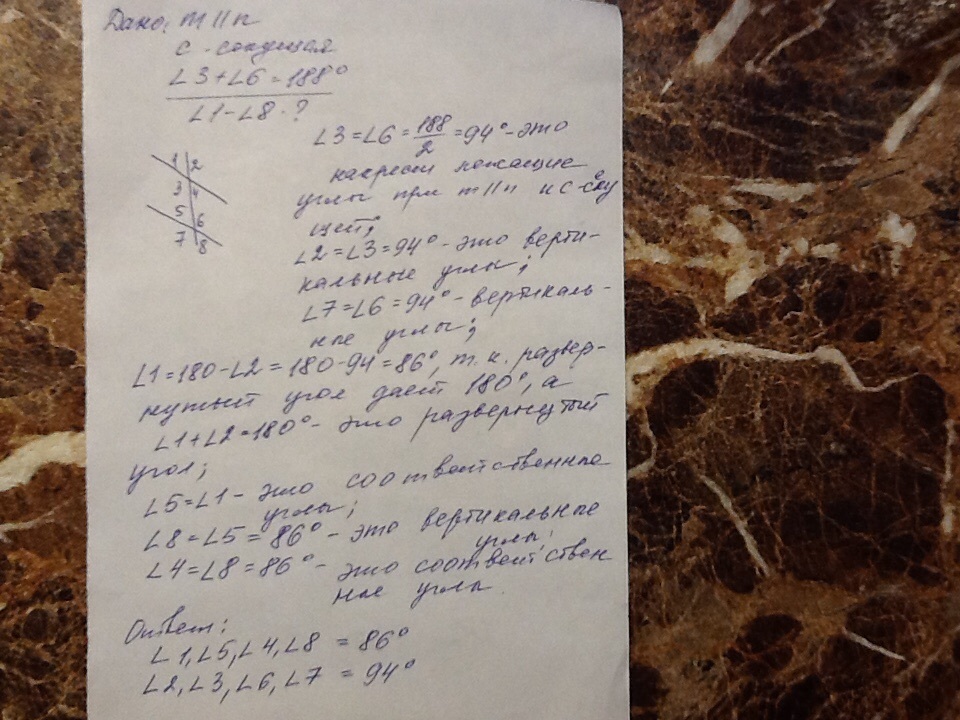 Дано: m || n
c - секущая
∠3+∠6=188°
∠1-∠8-?
∠3=∠6=188/2=94°-это
накрест лежащие
углы при m||n и с-секу
щей;
∠2=∠3=94°-это верти-
кальные углы;
∠7=∠6=94°-вертикаль-
ные углы;
1 2
3 4
5 6
7 8
∠1=180-∠2=180-94=86°, т.к. развер-
нутый угол дает 180°, а
∠1+∠2=180°- это развернутый
угол;
∠5=∠1- это соответственные
углы;
∠8=∠5=86°-это вертикальные
углы;
∠4=∠8=86°- это соответствен
ные углы.
Ответ:
∠1,∠5,∠4,∠8 = 86°
∠2,∠3,∠6,∠7 = 94°